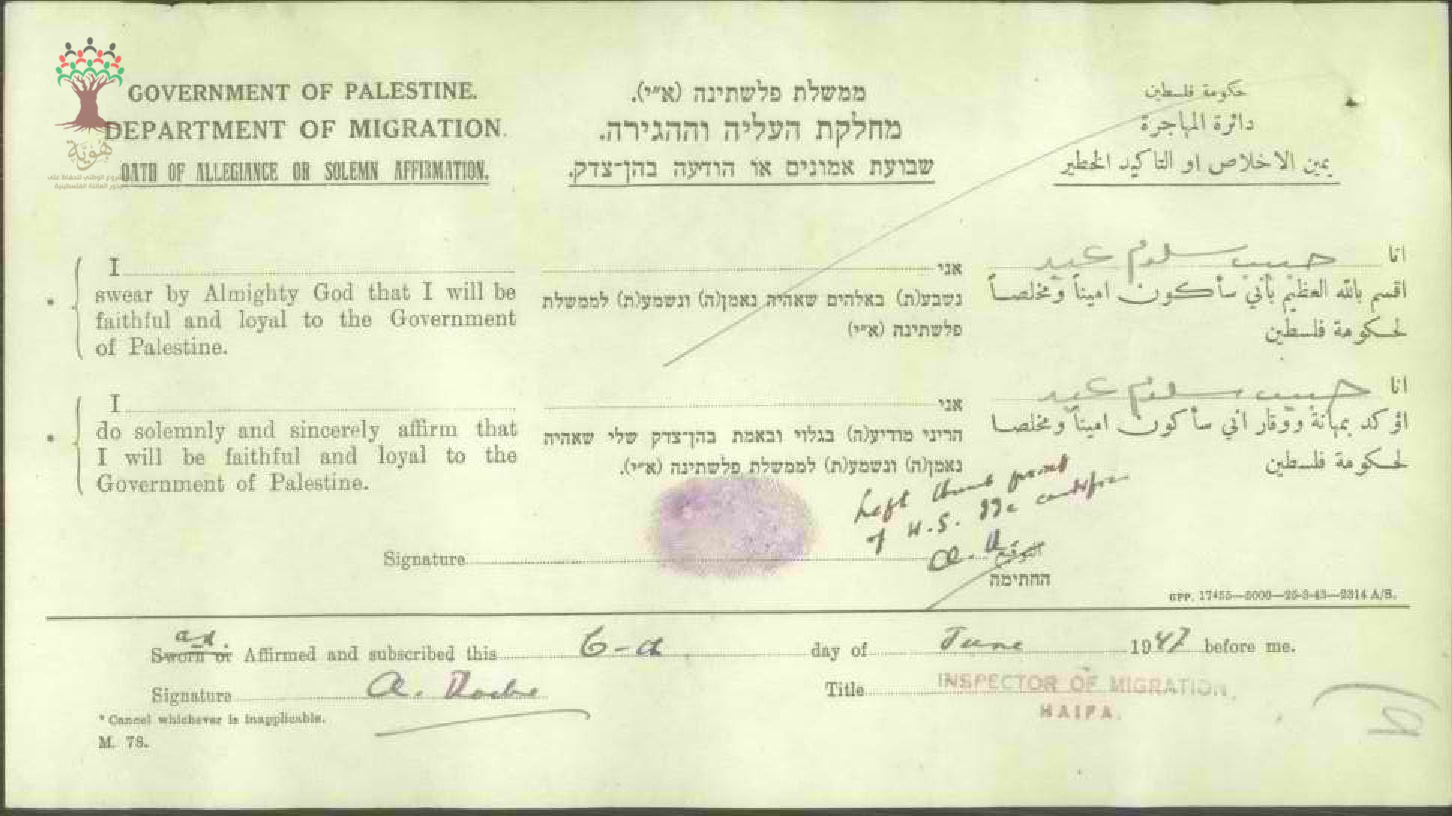 GOVERNMENT OF PALESTINE.
DEPARTMENT OF MIGRATION.
OATH OF ALLEGIANCE OR SOLEMN AFFIRMATION.
ממשלת פלשתינה (א״י).
מחלקת העליה וההגירה.
שבועת אמונים או הודעה בהן־צדק.
حكومة فلسطين
دائرة المهاجرة
يمين الاخلاص او التاكيد الخطير
هوية
I
swear by Almighty God that I will be
faithful and loyal to the Government
of Palestine.
אני
נשבע(ת) באלהים שאהיה נאמן(ה) ונשמע(ת) לממשלת
פלשתינה (א״י)
انا حبيب سلوم عيد
اقسم بالله العظيم بأني سأكون اميناً ومخلصاً
لحكومة فلسطين
I
do solemnly and sincerely affirm that
I will be faithful and loyal to the
Government of Palestine.
אני
הריני מודיע(ה) בגלוי ובאמת בהן־צדק שלי שאהיה
נאמן(ה) ונשמע(ת) לממשלת פלשתינה (א״י).
انا حبيب سلوم عيد
اؤكد بمهانة ووقار اني سأكون اميناً ومخلصا
لحكومة فلسطين
Left thumb print
of H.S.
Signature
التوقيع
החתימה
GPP. 17455—5000—25-3-43—2314 A/S.
Sworn or Affirmed and subscribed this 6- day of June 1947 before me.
Signature A.
Title INSPECTOR OF MIGRATION,
HAIFA.
* Cancel whichever is inapplicable.
M. 78.